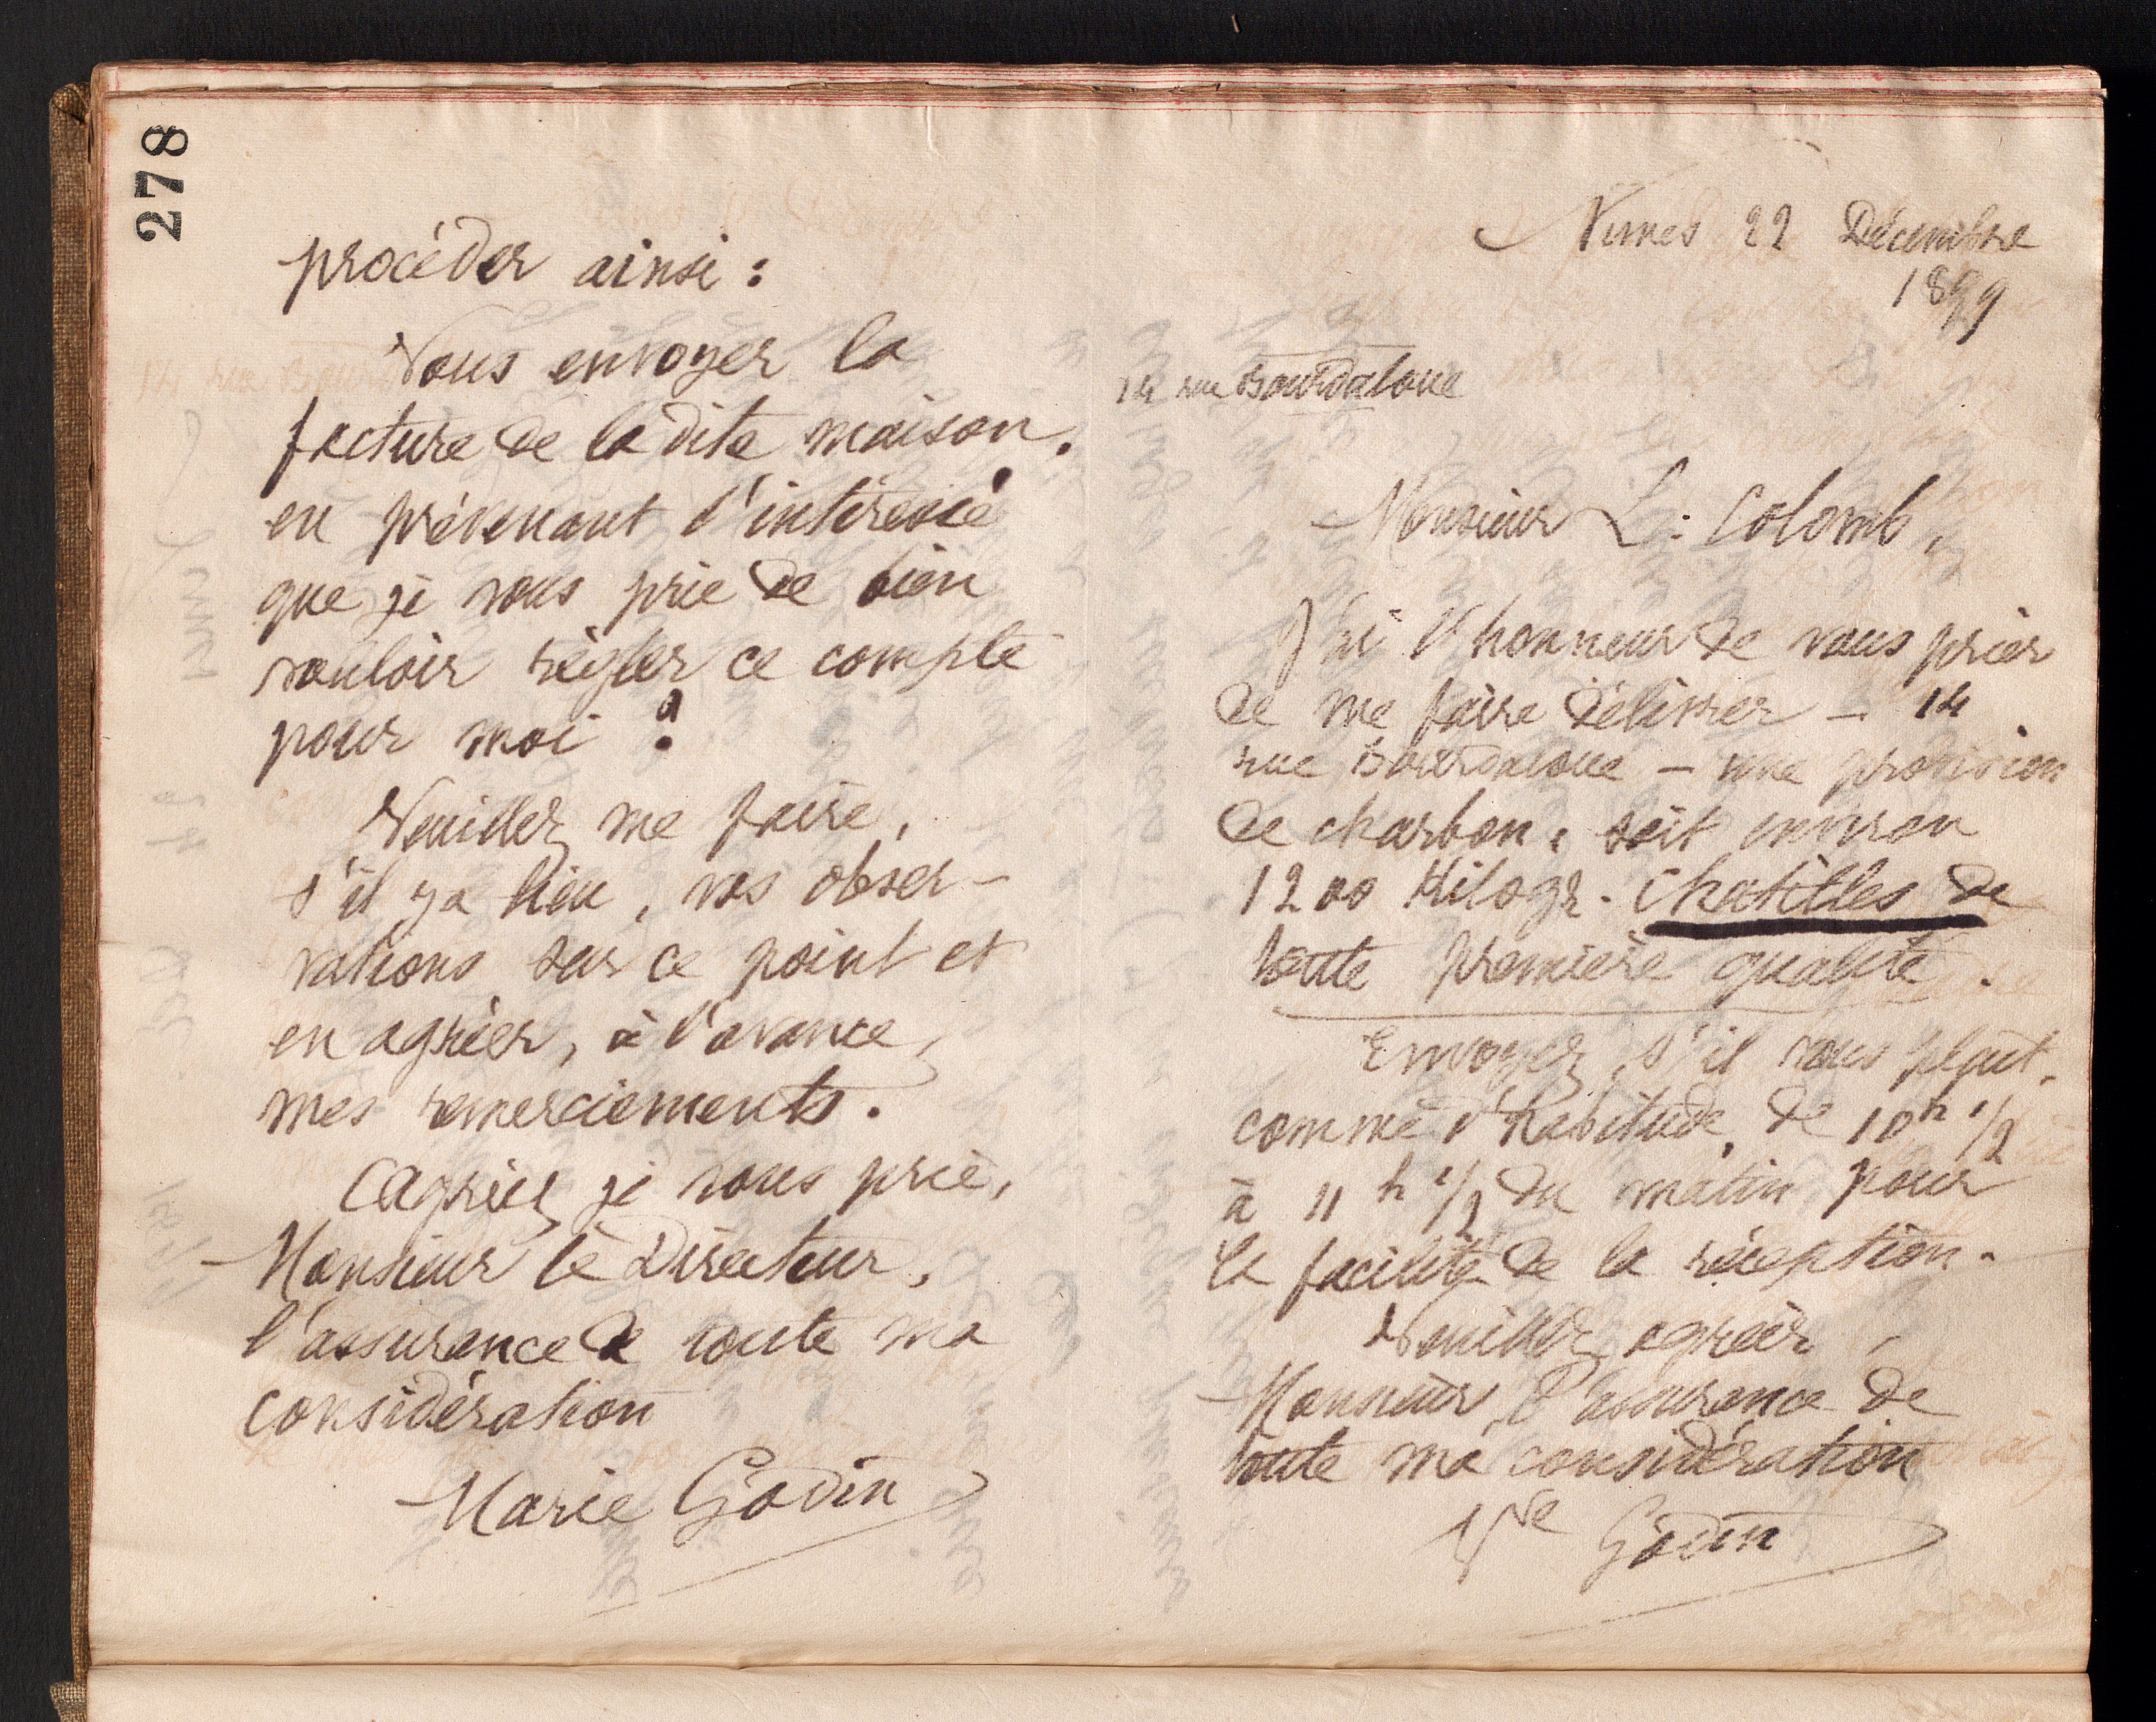 278
procéder ainsi :
Vous envoyer la
facture de la dite maison,
en prévenant l'intéressé
que je vous prie de bien
vouloir régler ce compte
pour moi ?
Veuillez me faire,
s'il y a lieu, vos obser-
vations sur ce point et
en agréer, à l'avance,
mes remerciements.
Agréez je vous prie,
Monsieur le Directeur,
l'assurance de toute ma
considération
Marie Godin
Nimes 22 Décembre
1899
14 rue Bourdaloue
Monsieur L. Colomb,
J'ai l'honneur de vous prier
de me faire délivrer - 14
rue Bourdaloue - une provision
de charbon, soit environ
1200 Kilogr. chatilles de
toute première qualité.
Envoyez, s'il vous plaît,
comme d'habitude, de 10h 1/2
à 11 h 1/2 du matin pour
la facilité de la réception.
Veuillez agréer,
Monsieur, l'assurance de
toute ma considération
Vve Godin